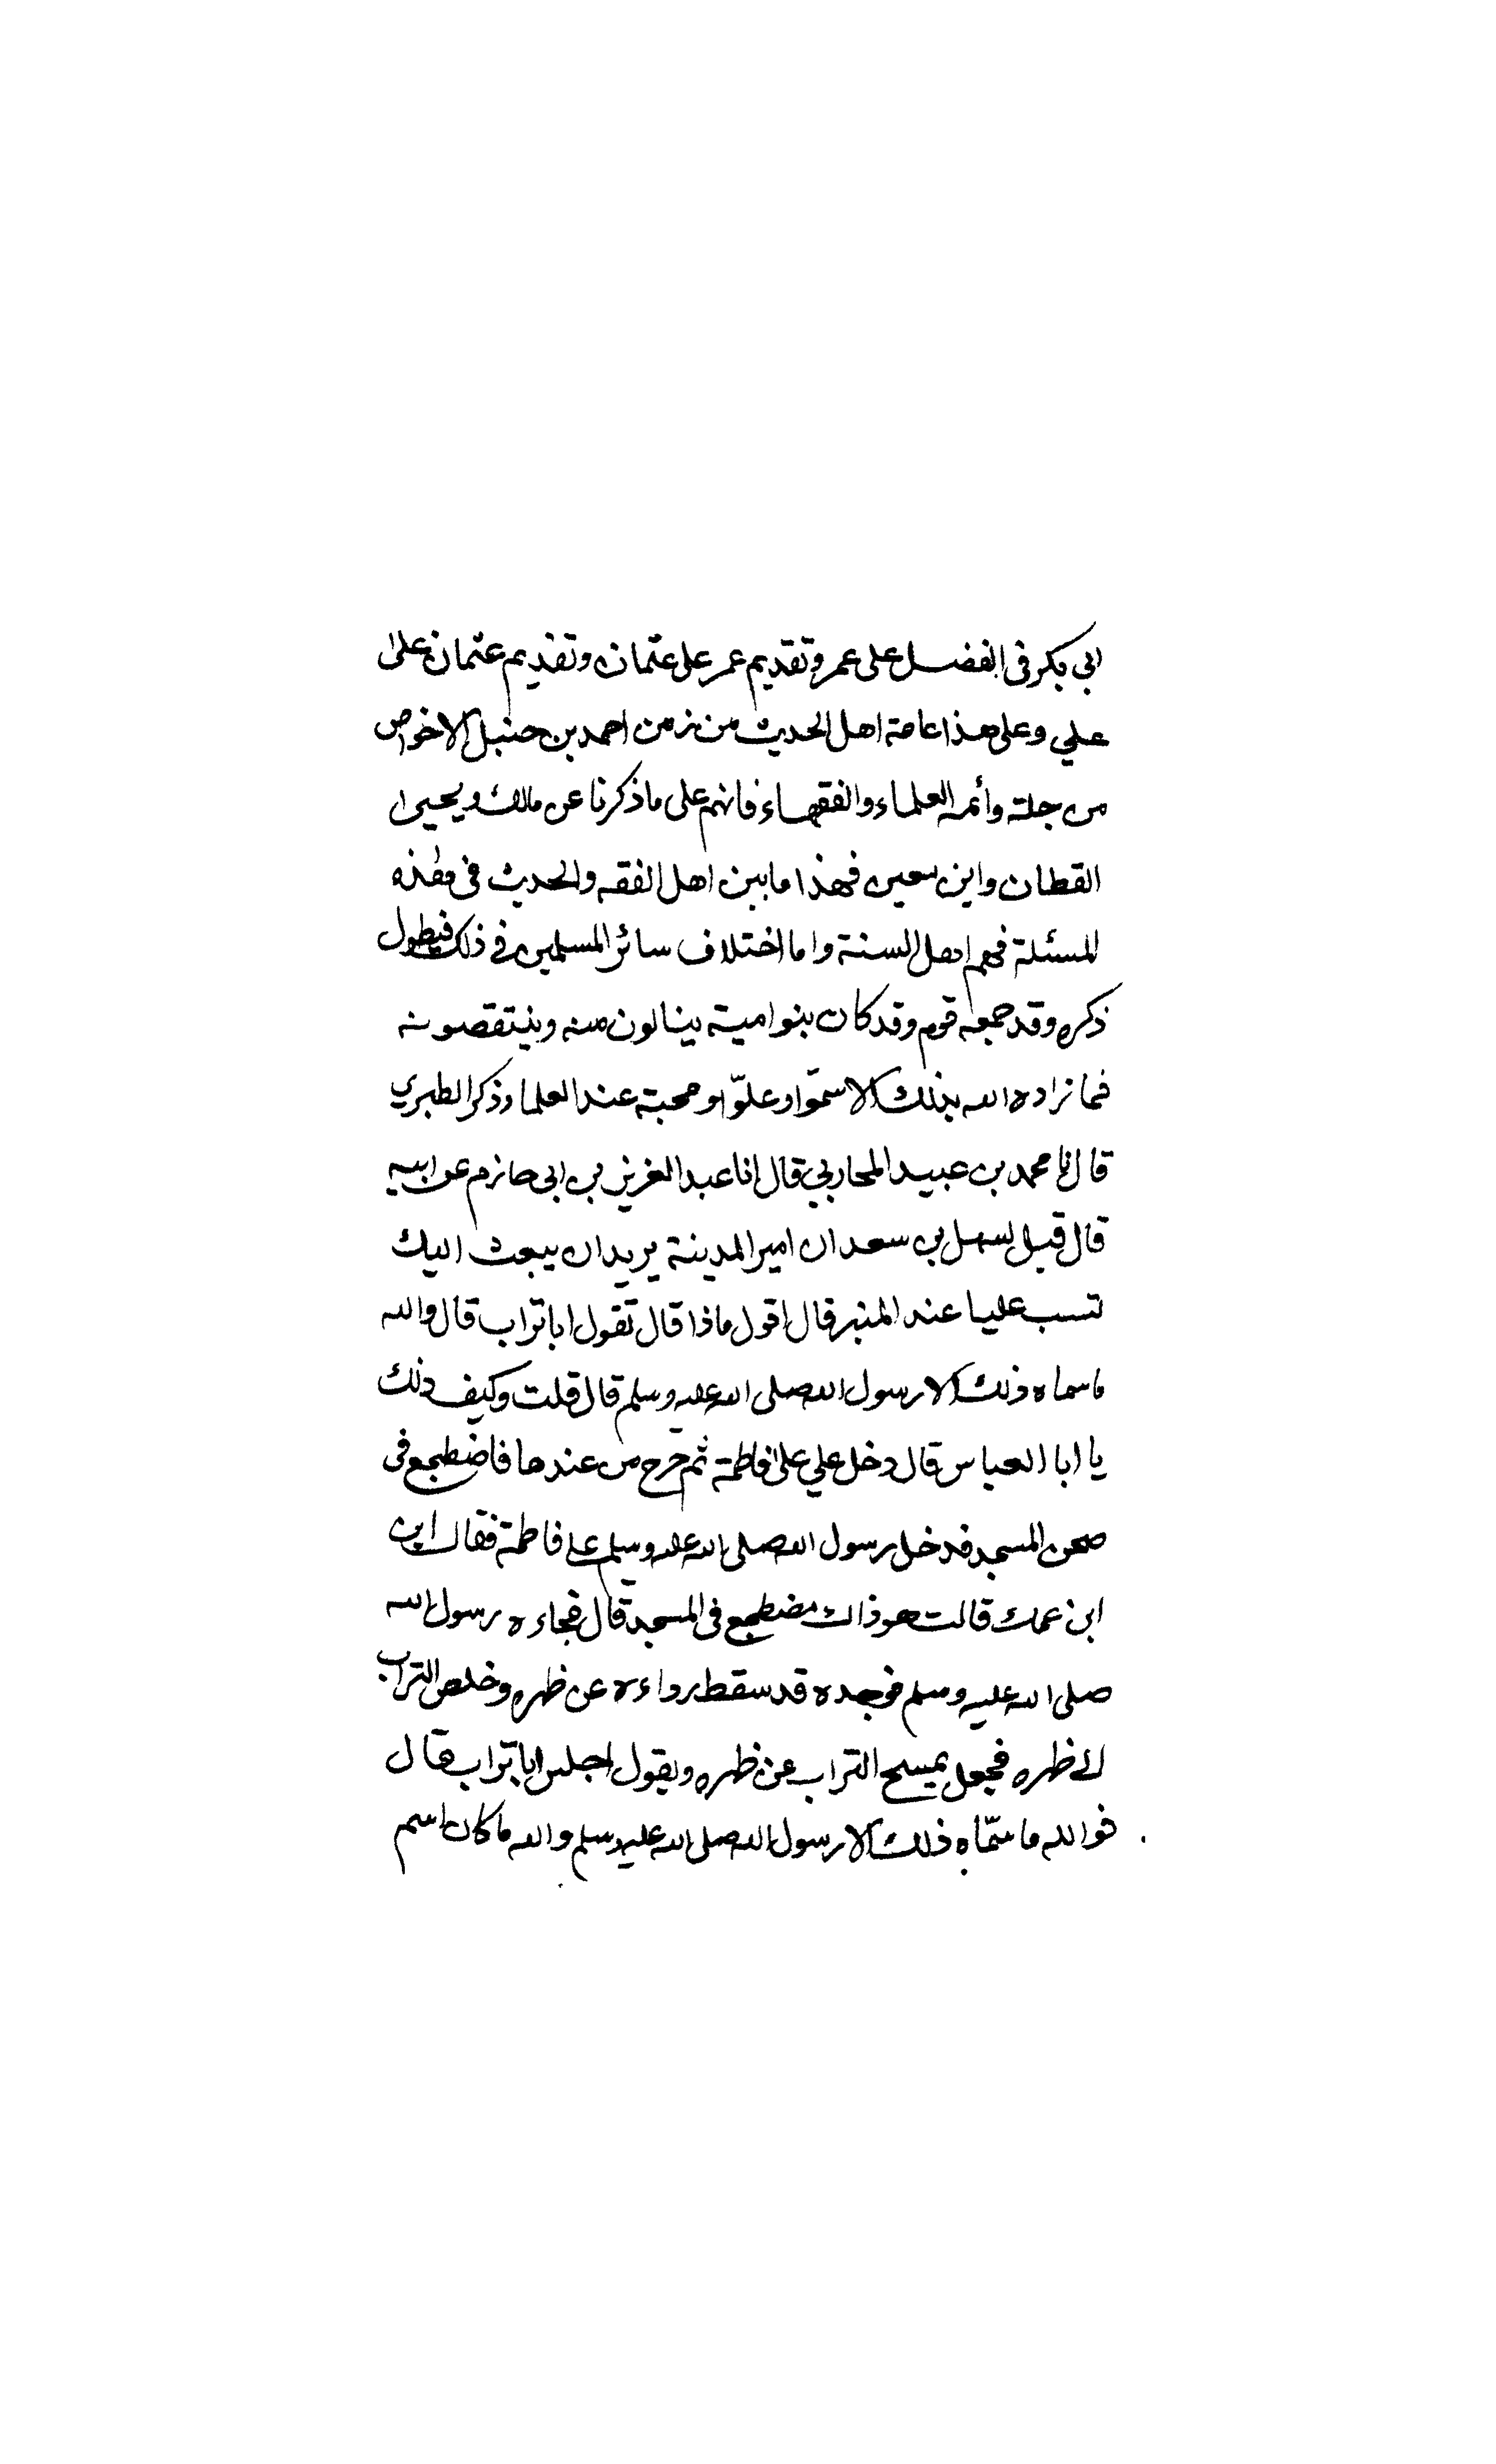 ابي بكر في الفضل على عمر وتقديم عمر على عثمان وتقديم عثمان على
علي وعلى هذا عامة اهل الحديث من زمن احمد بن حنبل الا خواص
من جلة وأئمة العلماء والفقهاء فانهم على ما ذكرنا عن مالك ويحيى
القطان وابن معين فهذا ما بين اهل الفقه والحديث في هذه
المسئلة فهم اهل السنة واما اختلاف سائر المسلمين في ذلك فيطول
ذكره وقد جمعه قوم وقد كان بنو امية ينالون منه وينتقصونه
فما زاده الله بذلك الا سموّا وعلوّا ومحبة عند العلما وذكر الطبري
قال نا محمد بن عبيد المحاربي قال انا عبد العزيز بن ابي حازم عن ابيه
قال قيل لسهل بن سعد ان امير المدينة يريد ان يبعث اليك
تسب عليا عند المنبر قال اقول ماذا قال تقول ابا تراب قال والله
ما سماه ذلك الا رسول الله صلى الله عليه وسلم قال قلت وكيف ذلك
يا ابا العباس قال دخل علي على فاطمة ثم خرج من عندها فاضطجع في
صحن المسجد فدخل رسول الله صلى الله عليه وسلم على فاطمة فقال اين
ابن عمك قالت هو ذاك مضطجع في المسجد قال فجاءه رسول الله
صلى الله عليه وسلم فوجده قد سقط رداءه عن ظهره وخلص التراب
الى ظهره فجعل يمسح التراب عن ظهره ويقول اجلس ابا تراب قال
فوالله ما سمّاه ذلك الا رسول الله صلى الله عليه وسلم والله ما كان اسم